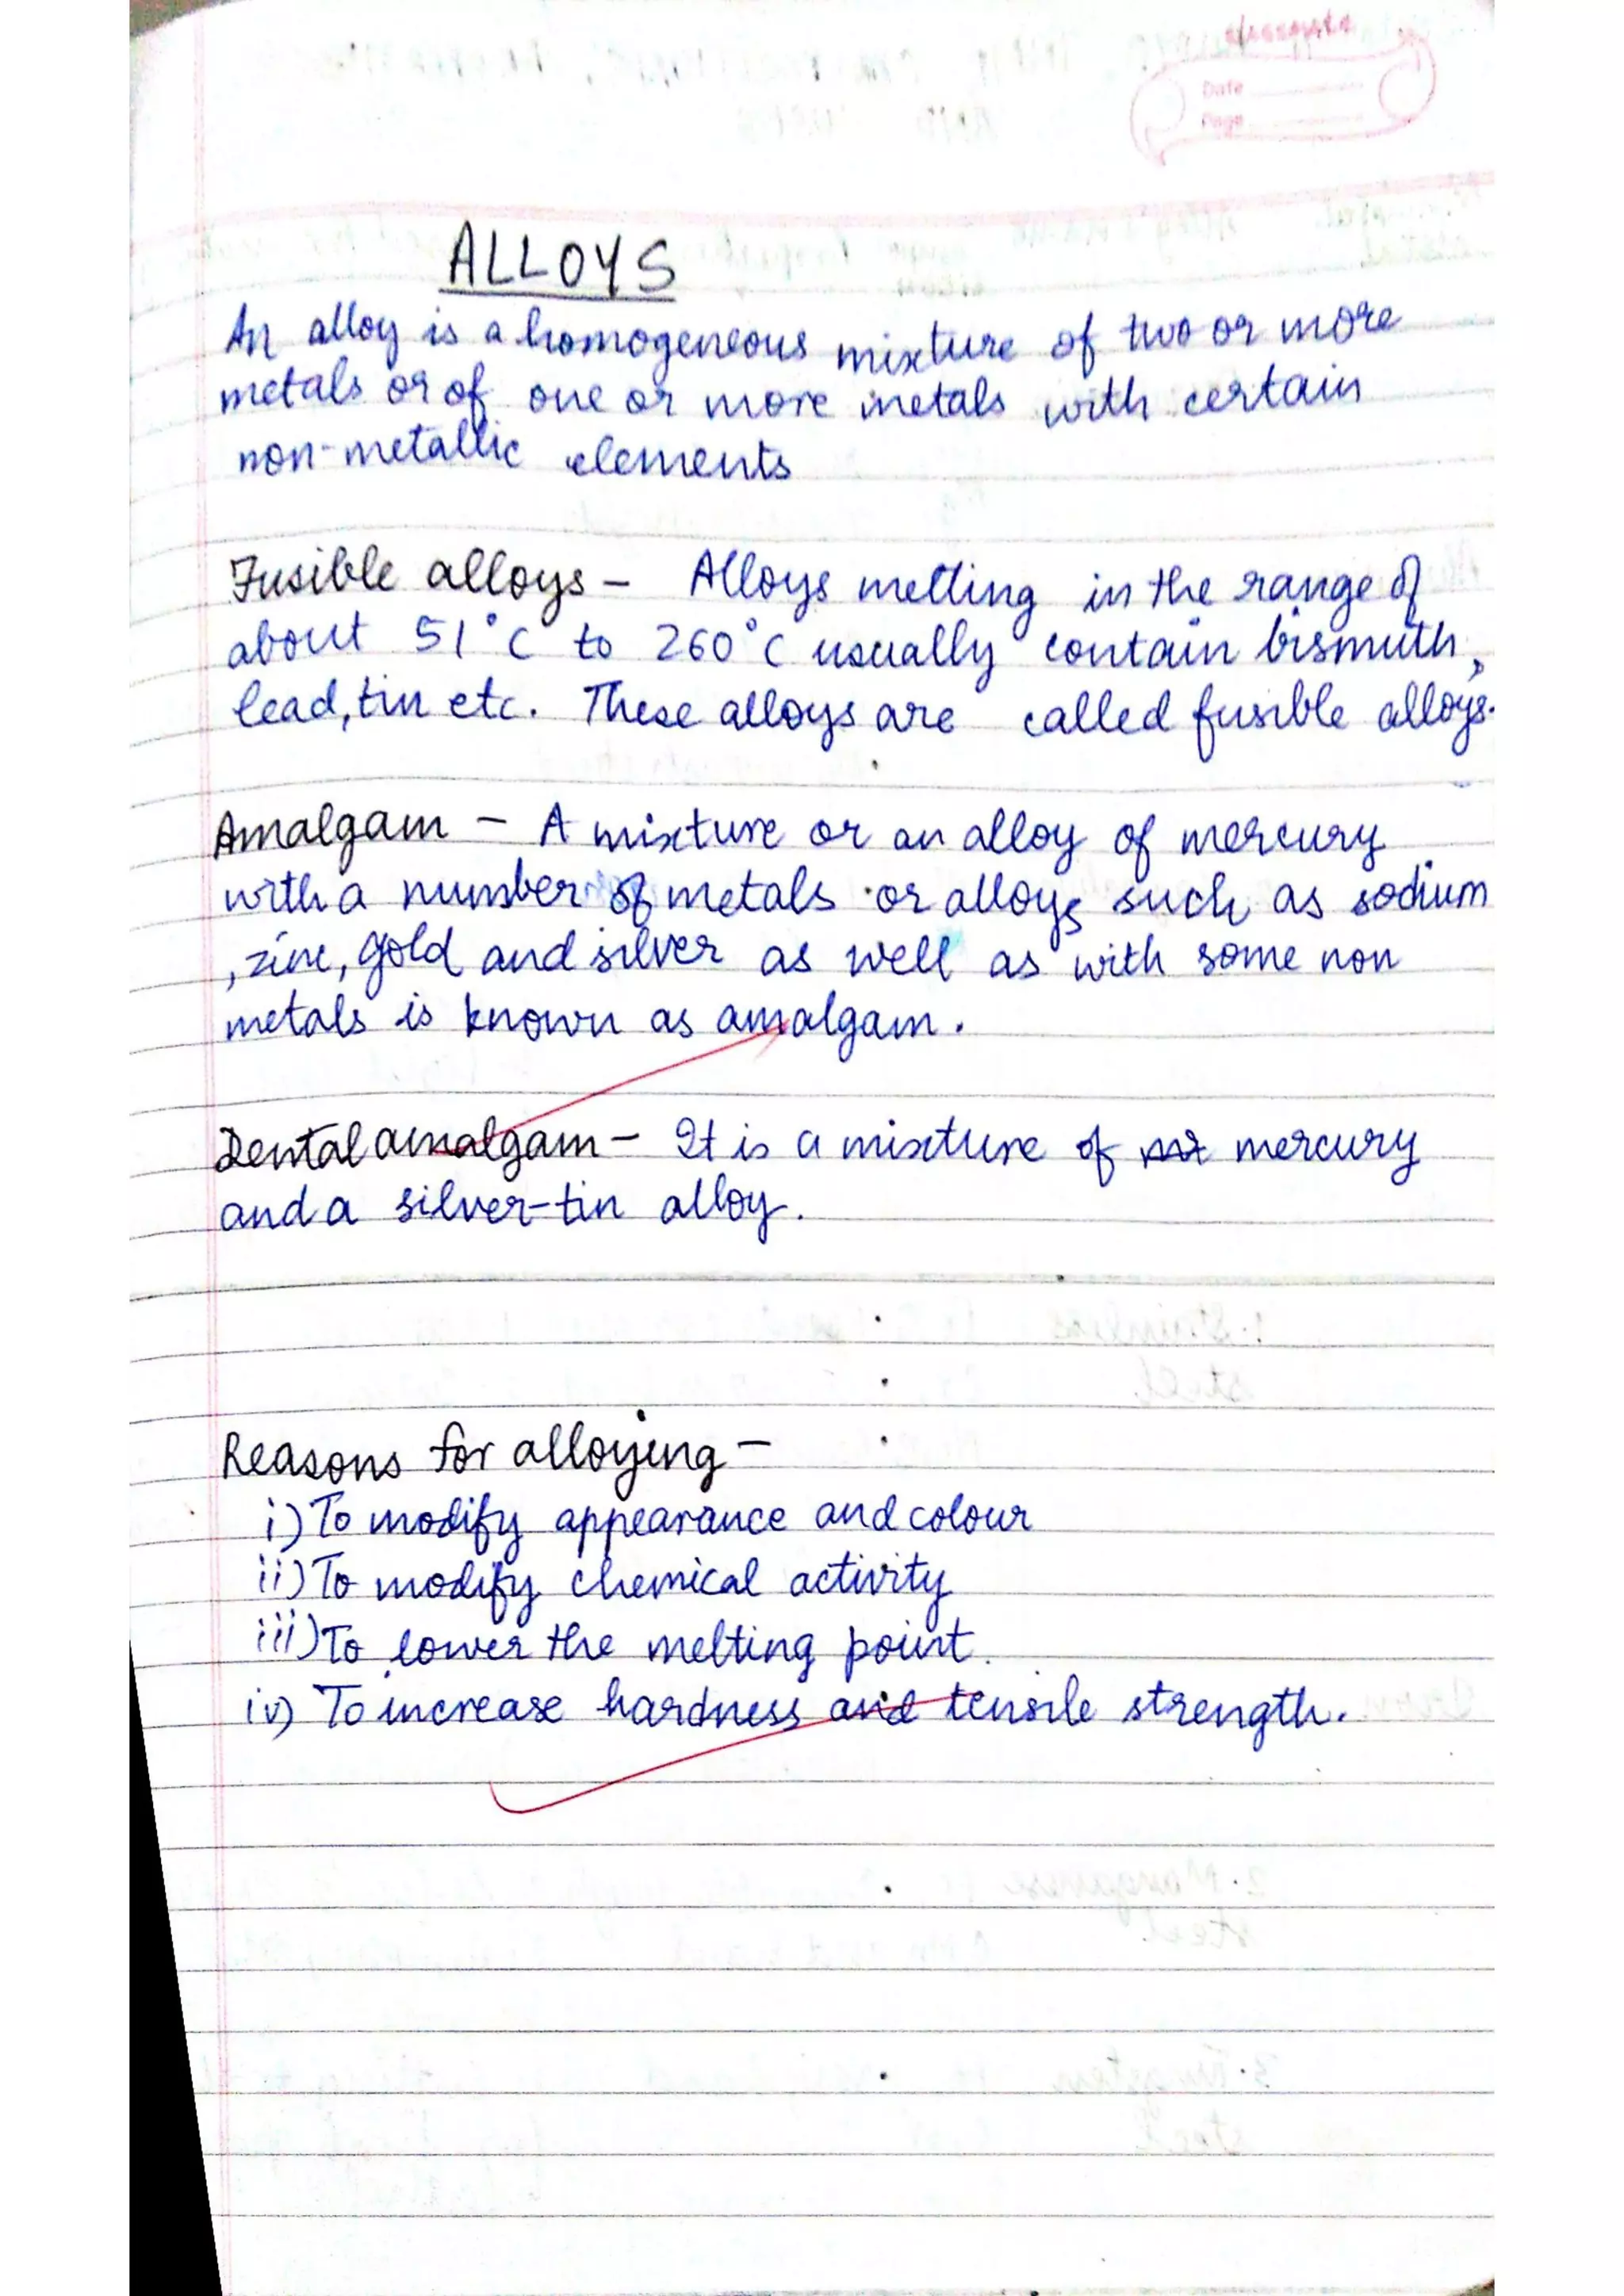 Date
Page
ALLOYS
An alloy is a homogeneous mixture of two or more
metals or of one or more metals with certain
non-metallic elements
Fusible alloys - Alloys melting in the range of
about 51°C to 260°C usually contain bismuth,
lead, tin etc. These alloys are called fusible alloys.
Amalgam - A mixture or an alloy of mercury
with a number of metals or alloys such as sodium
, zinc, gold and silver as well as with some non
metals is known as amalgam.
Dental amalgam - It is a mixture of mercury
and a silver-tin alloy.
Reasons for alloying -
i) To modify appearance and colour
ii) To modify chemical activity
iii) To lower the melting point.
iv) To increase hardness and tensile strength.